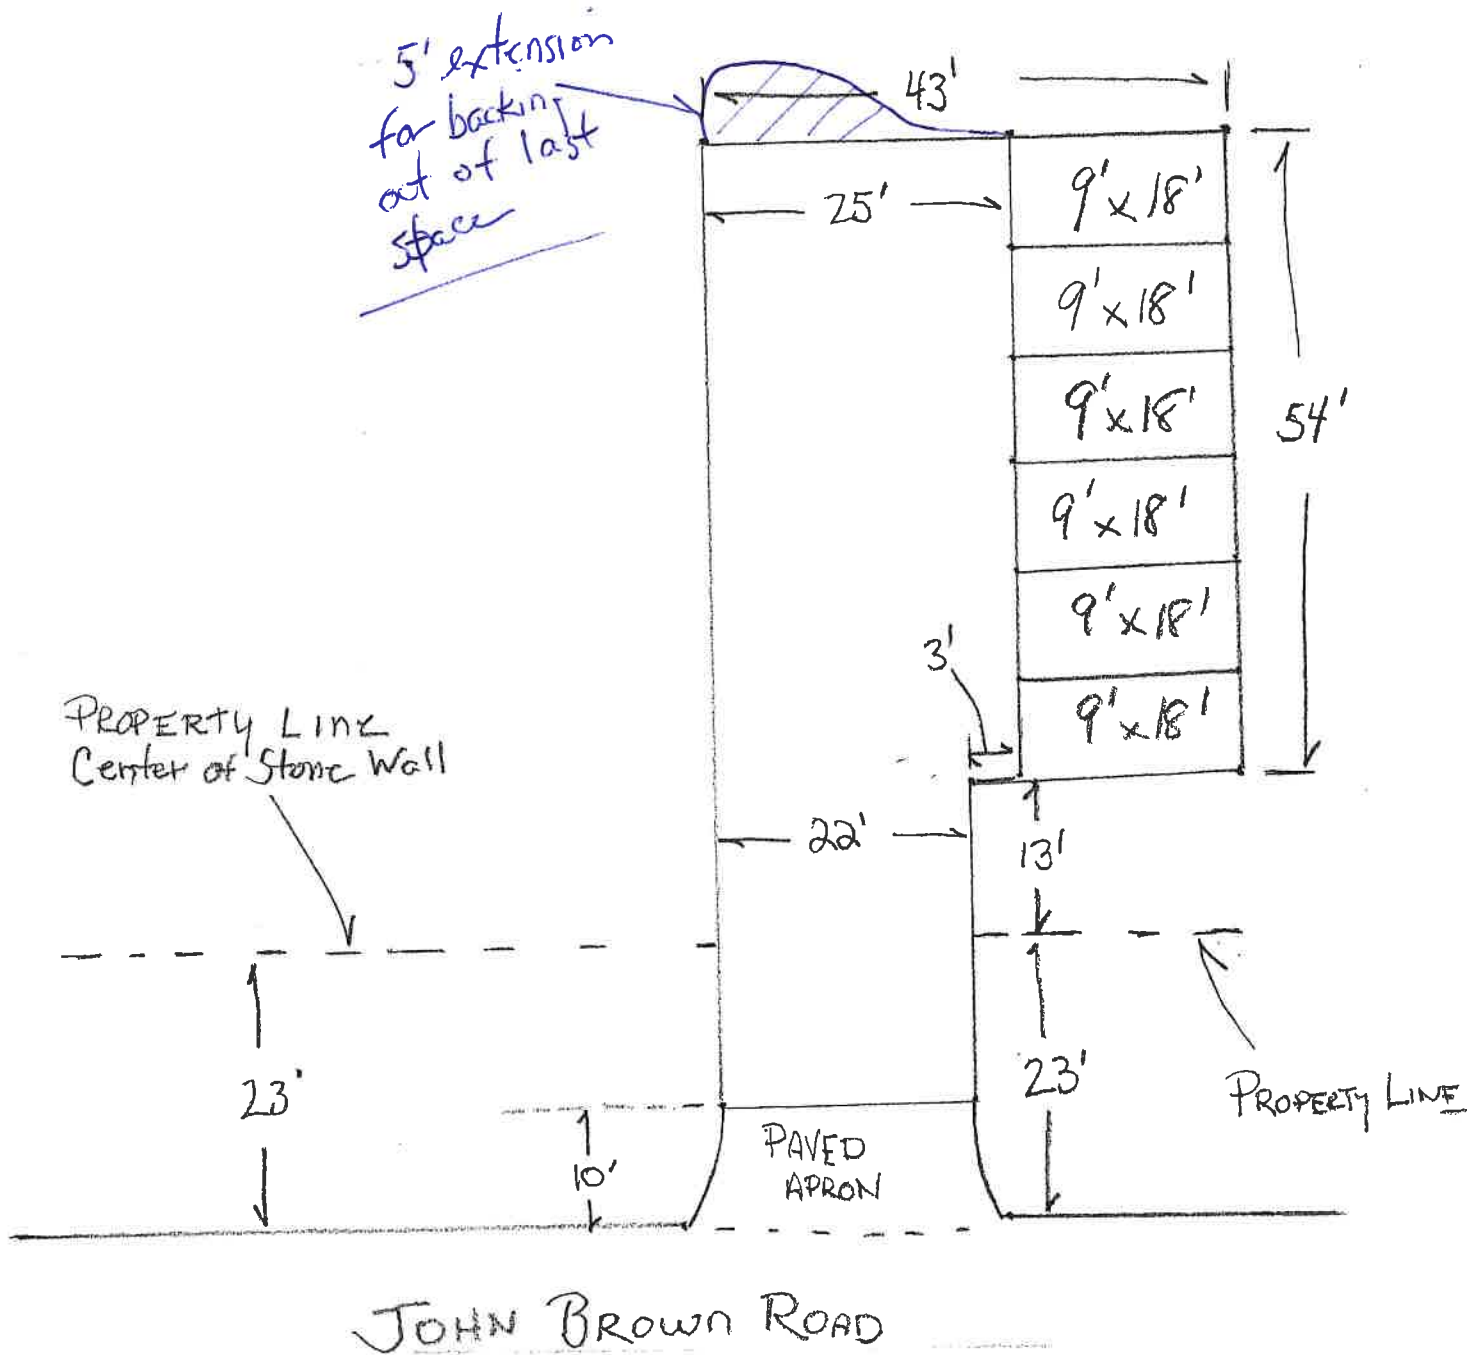 5' extension
for backing
out of last
space
43'
25'
9' x 18'
9' x 18'
9' x 18'
9' x 18'
9' x 18'
9' x 18'
54'
3'
PROPERTY LINE
Center of Stone Wall
22'
13'
23'
23'
PROPERTY LINE
10'
PAVED
APRON
JOHN BROWN ROAD